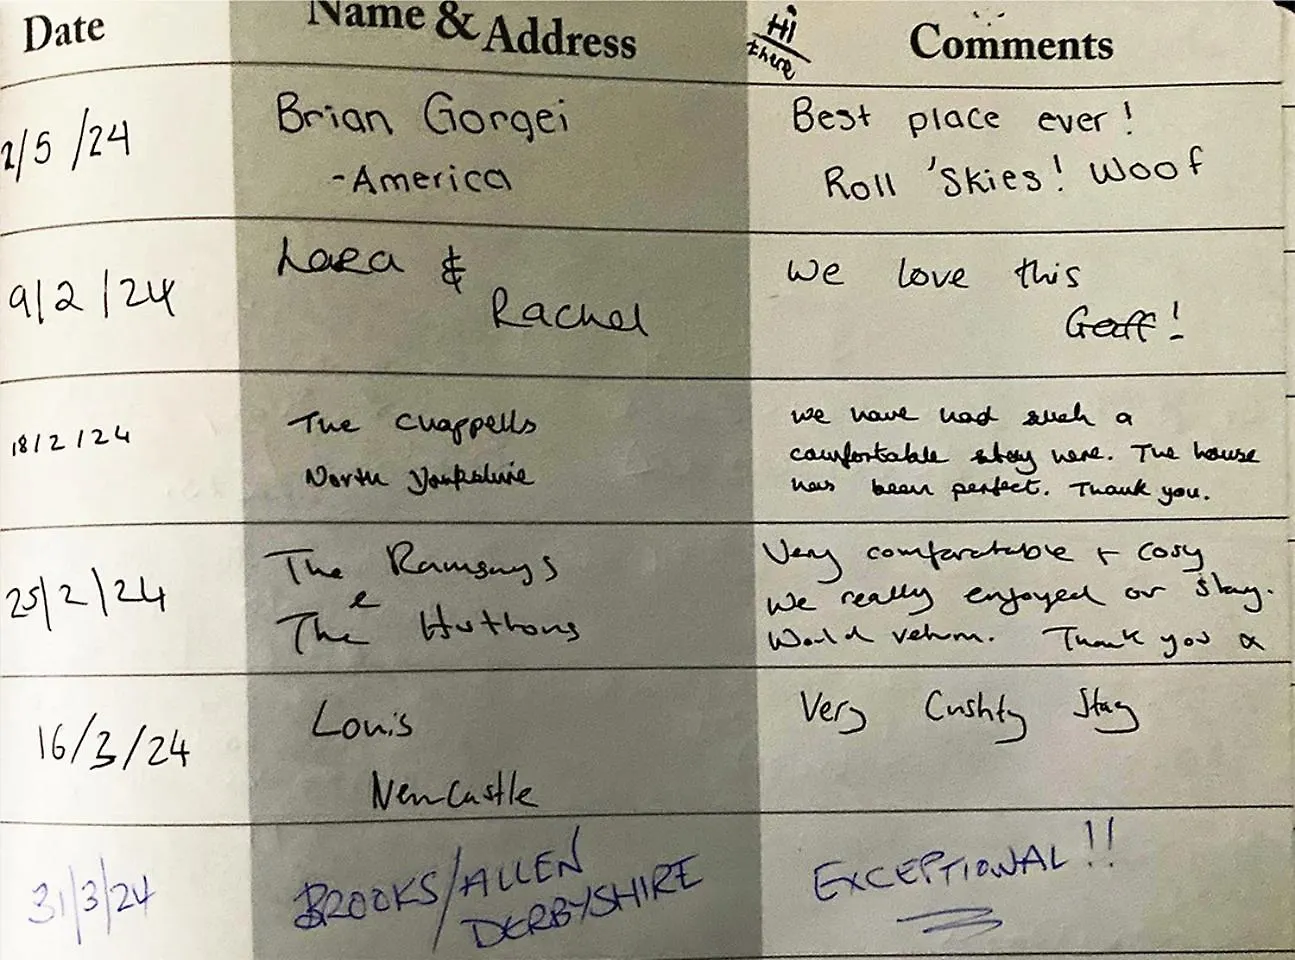 Date Name & Address Hi there Comments
2/5/24 Brian Gorgei Best place ever!
-America Roll 'Skies! Woof
9/2/24 Lara & We love this
Rachel Gaff!
18/2/24 The Chappells We have had such a
North Yorkshire comfortable stay here. The house
has been perfect. Thank you.
25/2/24 The Ramsays Very comfortable + cosy
e We really enjoyed our stay.
The Huttons Would return. Thank you
16/3/24 Louis Very Cushty Stay
Newcastle
31/3/24 BROOKS/ALLEN EXCEPTIONAL!!
DERBYSHIRE